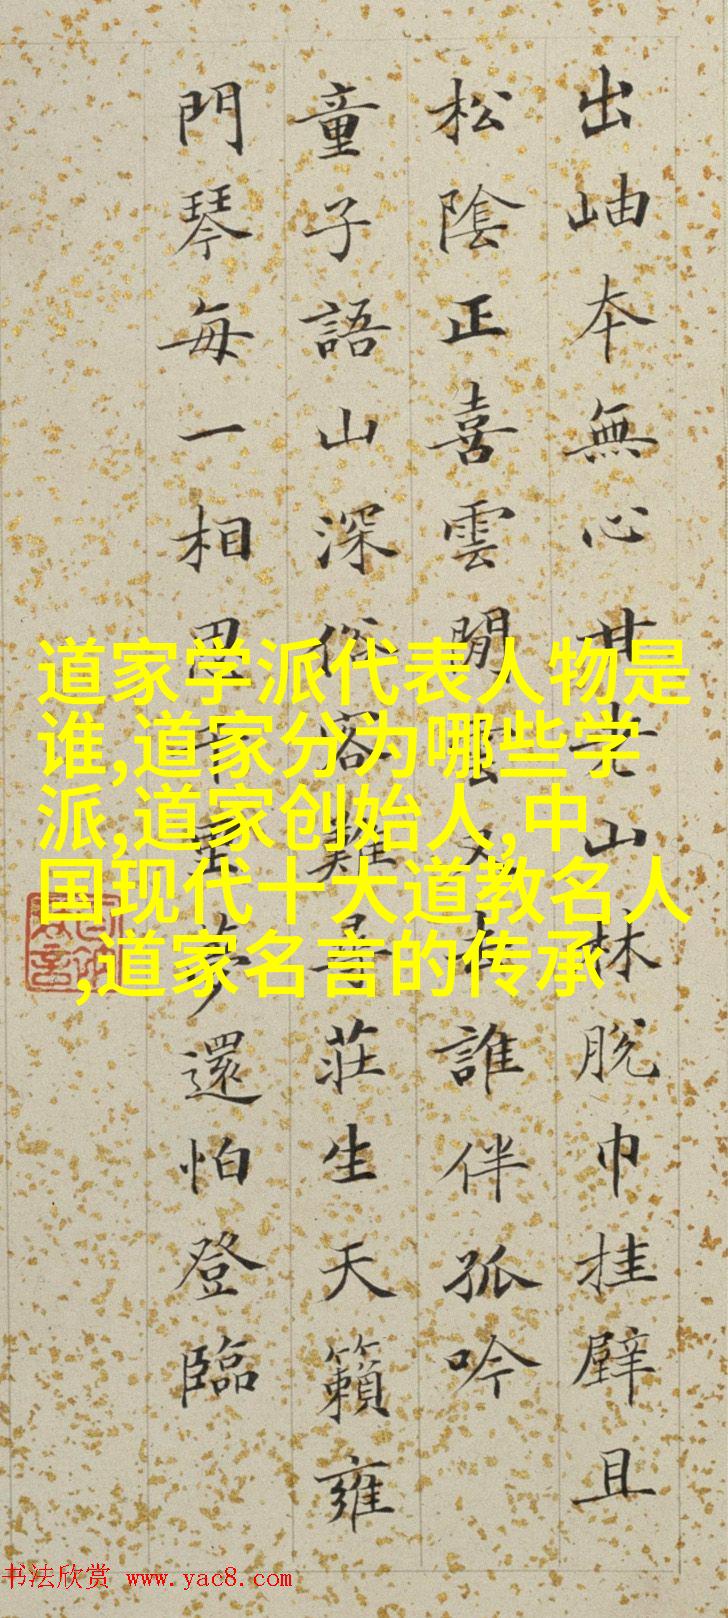 出岫本無心老山林脫巾挂壁且
松陰正喜雲閒誰伴孤吟
童子語山深俗客難尋莊生天籟雍
門琴每一相思千里夢還怕登臨
道家学派代表人物是
谁,道家分为哪些学
派,道家创始人,中
国现代十大道教名人
,道家名言的传承
书法欣赏 www.yac8.com